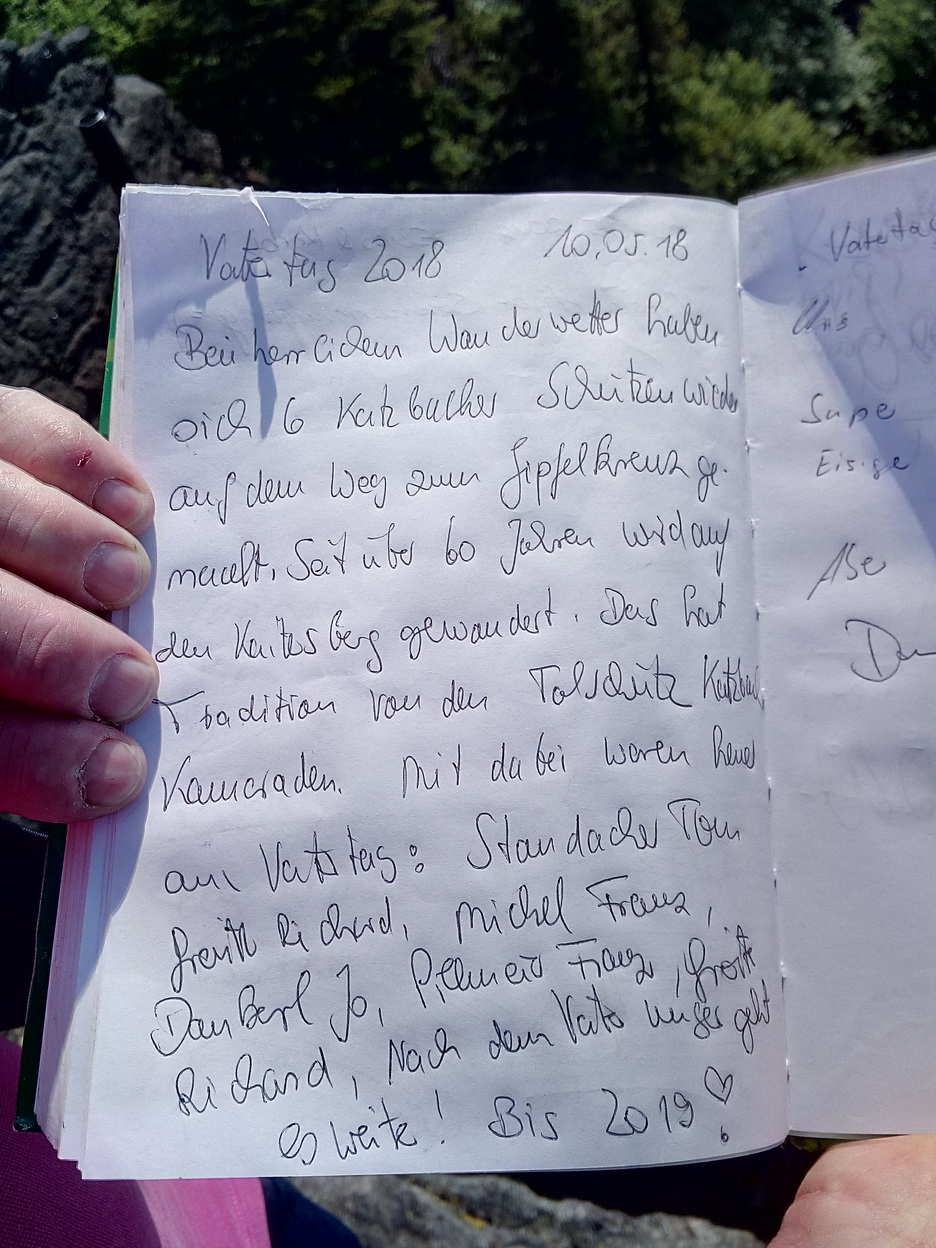 Vatertag 2018 10.05.18
Bei herrlichem Wanderwetter haben
sich 6 Katzbacher Schützen wieder
auf dem Weg zum Gipfelkreuz ge-
macht. Seit über 60 Jahren wird auf
den Kaitersberg gewandert. Das hat
Tradition von den Talschütz Katzbach
Kameraden. Mit dabei waren heuer
am Vatertag: Standacher Tom
Richard, Michel Franz,
Jo, Franz,
Richard, Nach dem Vater unser geht
es weiter! Bis 2019 ♡!
Vatertag
Supe
Eisge